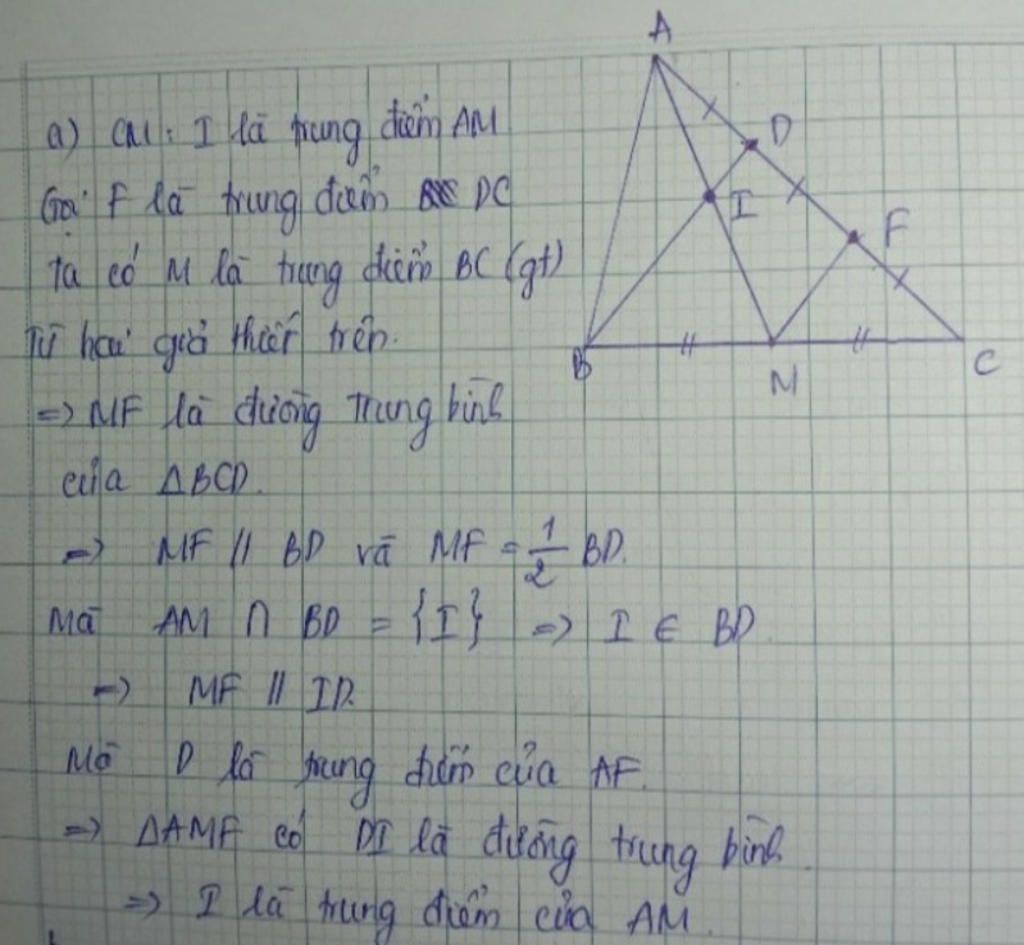 A
a) CM: I là trung điểm AM
D
Gọi F là trung điểm DC
I
F
Ta có M là trung điểm BC (gt)
Từ hai giả thiết trên.
B
M
C
=> MF là đường trung bình
của ΔBCD.
=> MF // BD và MF = 1/2 BD.
Mà AM ∩ BD = {I} => I ∈ BD
=> MF // ID.
Mà D là trung điểm của AF.
=> ΔAMF có DI là đường trung bình.
=> I là trung điểm của AM.